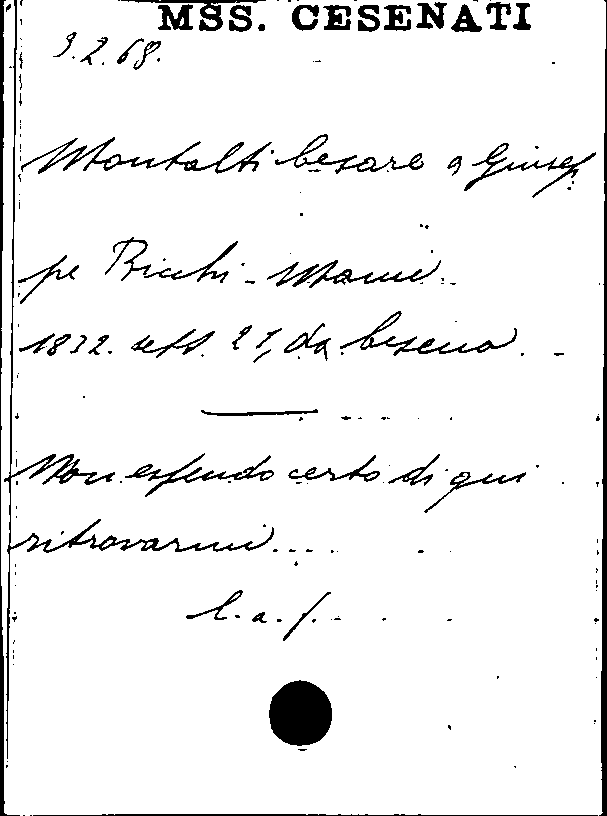 MSS. CESENATI
9.2.68.
Montalti Cesare a Giusep
pe Ricchi - Mamì
1832. sett. 21, da Cesena.
Non essendo certo di qui
ritrovarmi....
C. a. f.